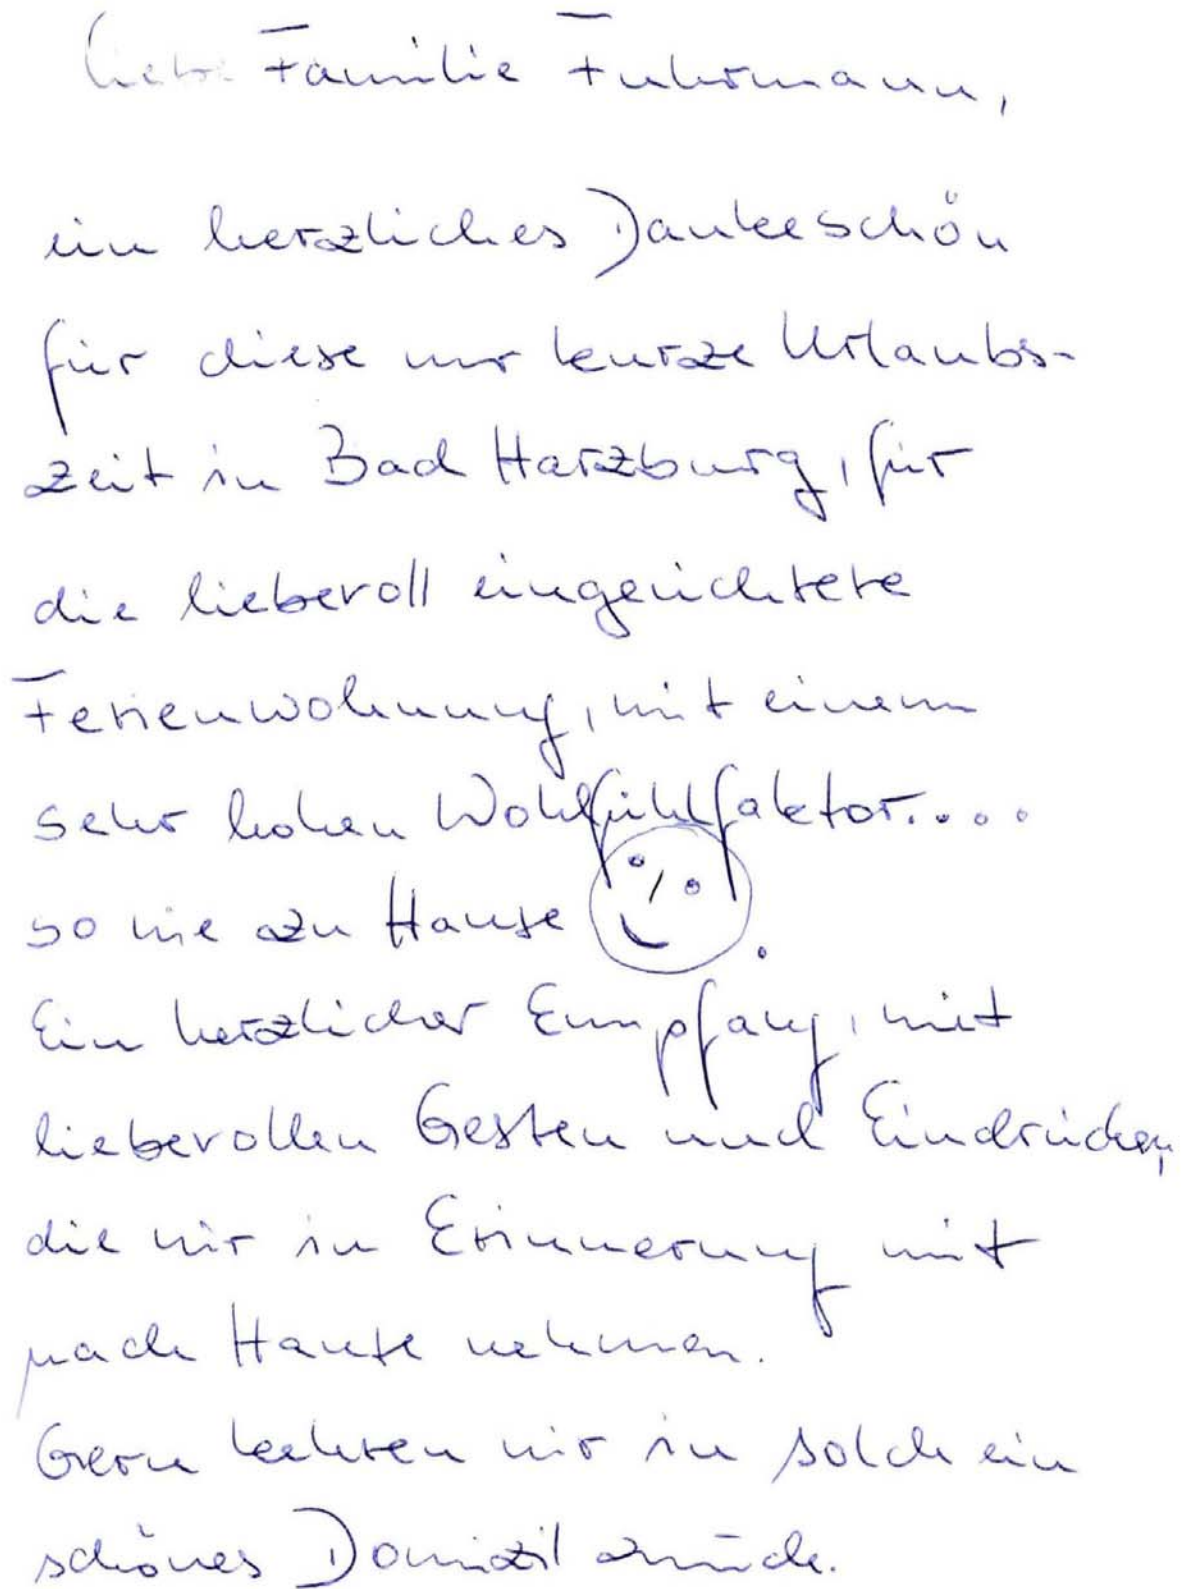 Liebe Familie Fuhrmann,
ein herzliches Dankeschön
für diese nur kurze Urlaubs-
zeit in Bad Harzburg, für
die liebevoll eingerichtete
Ferienwohnung, mit einem
sehr hohen Wohlfühlfaktor....
so wie zu Hause .
Ein herzlicher Empfang, mit
liebevollen Gesten und Eindrücken,
die wir in Erinnerung mit
nach Hause nehmen.
Gern kehren wir in solch ein
schönes Domizil zurück.